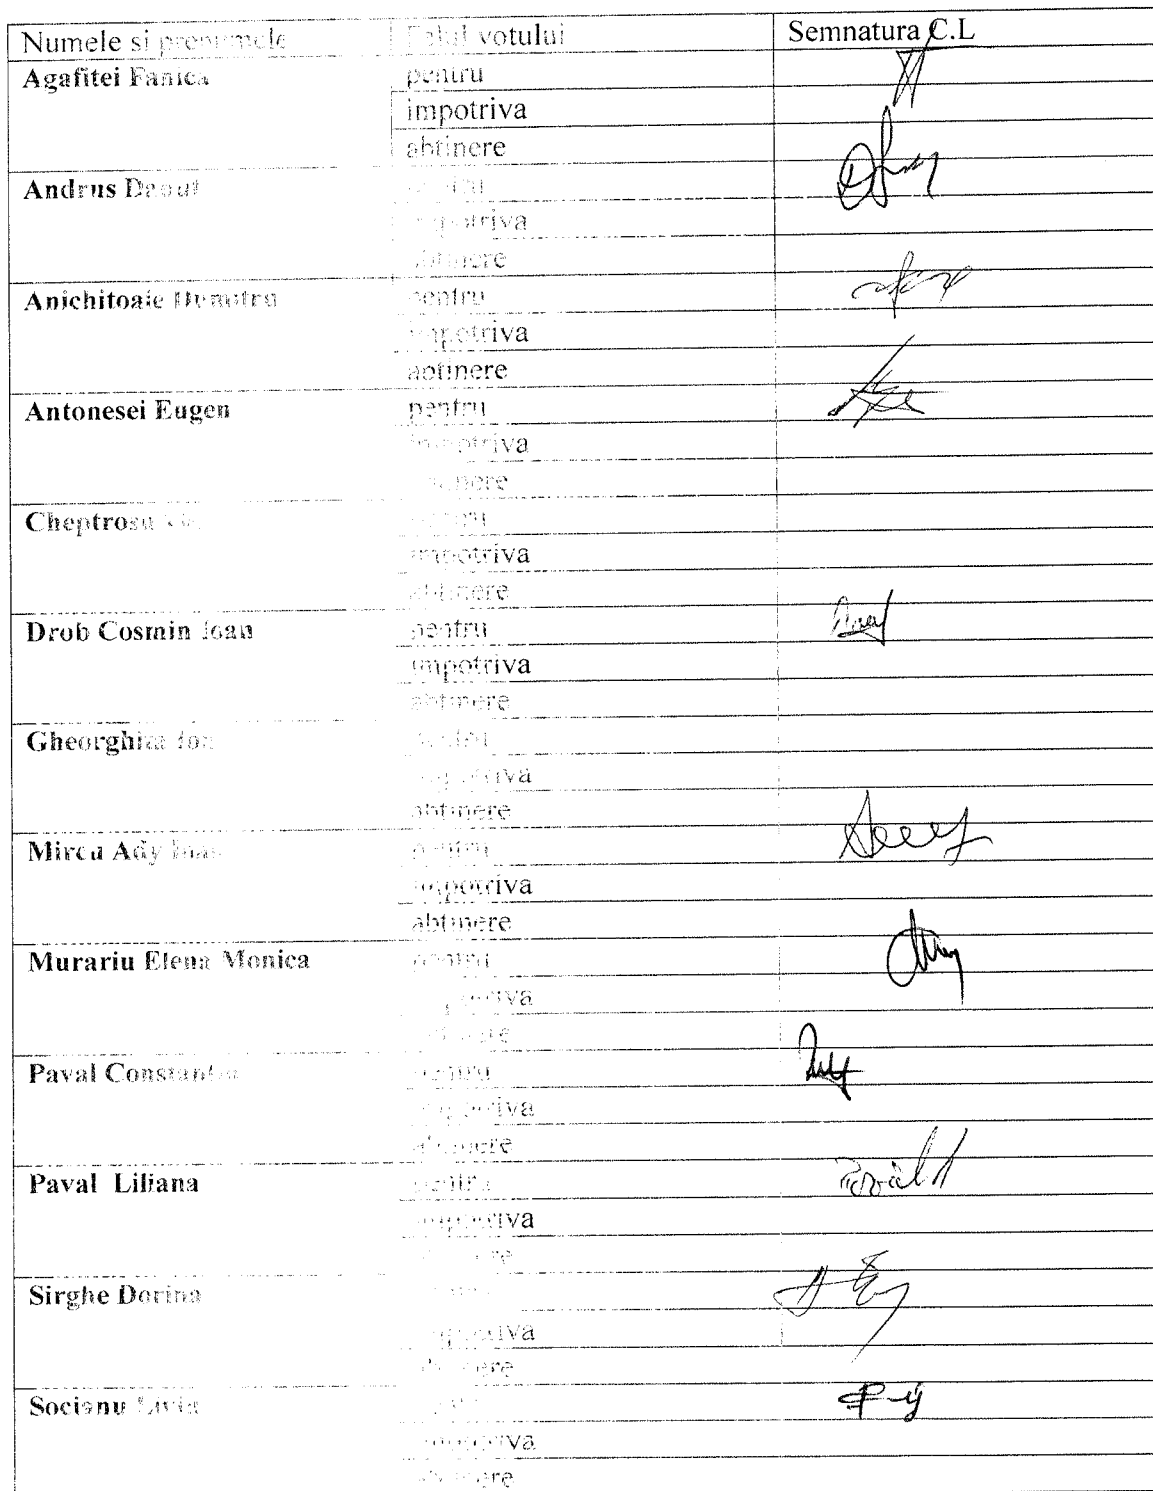 Numele si prenumele Felul votului Semnatura C.L
Agafitei Fanica pentru
impotriva
abtinere
Andrus Danut pentru
impotriva
abtinere
Anichitoaie Dumitru pentru
impotriva
abtinere
Antonesei Eugen pentru
impotriva
abtinere
Cheptrosu pentru
impotriva
abtinere
Drob Cosmin Ioan pentru
impotriva
abtinere
Gheorghita Ion pentru
impotriva
abtinere
Mircu Ady Ioan pentru
impotriva
abtinere
Murariu Elena Monica pentru
impotriva
abtinere
Paval Constantin pentru
impotriva
abtinere
Paval Liliana pentru
impotriva
abtinere
Sirghe Dorina pentru
impotriva
abtinere
Socianu Liviu pentru
impotriva
abtinere